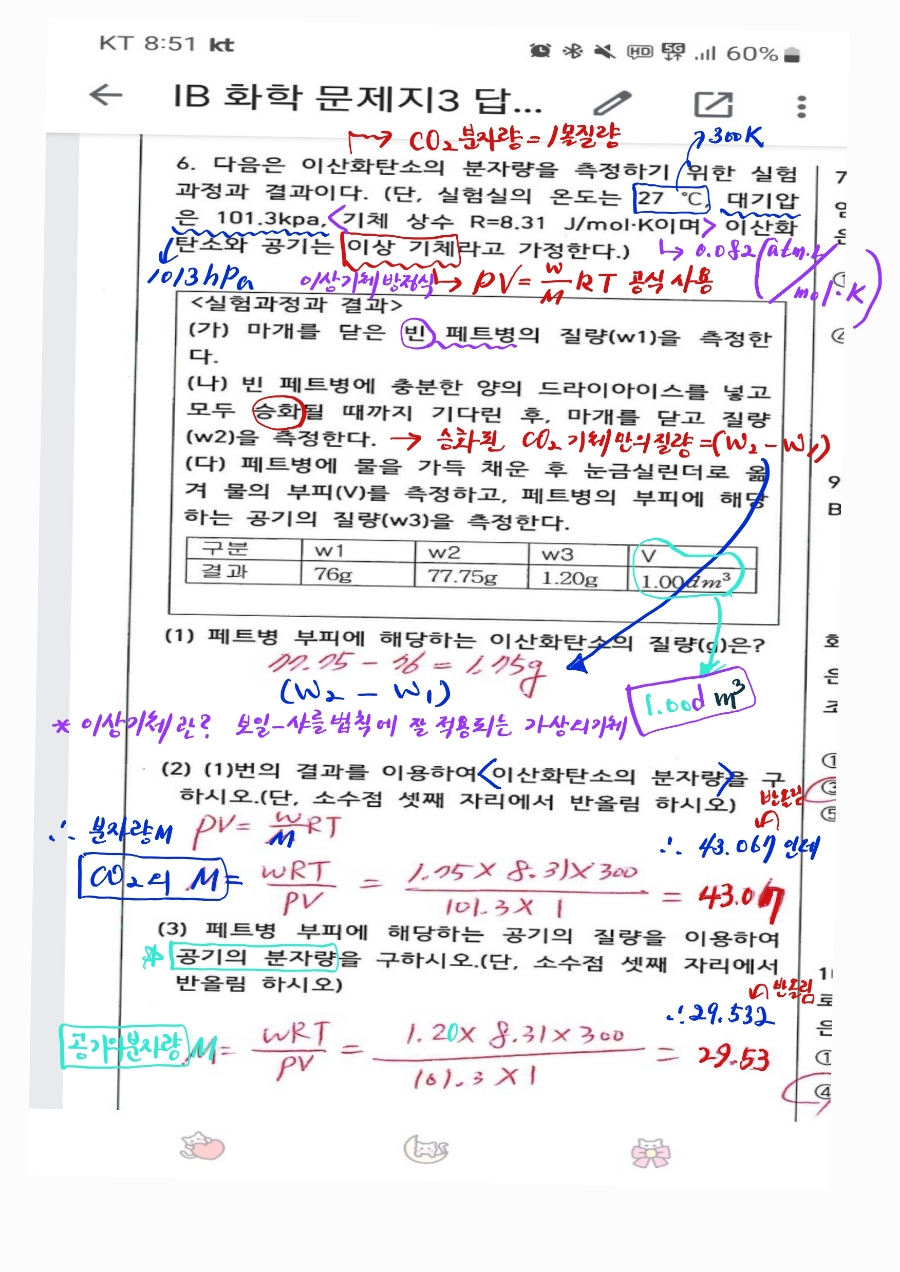 KT 8:51 kt
HD 5G 60%
IB 화학 문제지3 답...
→ CO₂ 분자량 = 1몰질량
300K
6. 다음은 이산화탄소의 분자량을 측정하기 위한 실험
과정과 결과이다. (단, 실험실의 온도는 27 ℃, 대기압
은 101.3kpa, 기체 상수 R=8.31 J/mol·K이며 이산화
탄소와 공기는 이상 기체라고 가정한다.)
→ 0.082 (atm·L / mol·K)
1013hPa
이상기체방정식 → PV = w/M RT 공식 사용
<실험과정과 결과>
(가) 마개를 닫은 빈 페트병의 질량(w1)을 측정한
다.
(나) 빈 페트병에 충분한 양의 드라이아이스를 넣고
모두 승화될 때까지 기다린 후, 마개를 닫고 질량
(w2)을 측정한다. → 승화된 CO₂ 기체만의질량 = (W₂ - W₁)
(다) 페트병에 물을 가득 채운 후 눈금실린더로 옮
겨 물의 부피(V)를 측정하고, 페트병의 부피에 해당
하는 공기의 질량(w3)을 측정한다.
구분 w1 w2 w3 V
결과 76g 77.75g 1.20g 1.00dm³
(1) 페트병 부피에 해당하는 이산화탄소의 질량(g)은?
77.75 - 76 = 1.75g
(W₂ - W₁)
1.00d m³
* 이상기체란? 보일-샤를법칙에 잘 적용되는 가상의기체
(2) (1)번의 결과를 이용하여 <이산화탄소의 분자량>을 구
하시오.(단, 소수점 셋째 자리에서 반올림 하시오)
반올림
∴ 분자량M PV = w/M RT
∴ 43.067 인데
CO₂의 M = wRT/PV = 1.75 × 8.31 × 300 / 101.3 × 1 = 43.07
(3) 페트병 부피에 해당하는 공기의 질량을 이용하여
공기의 분자량을 구하시오.(단, 소수점 셋째 자리에서
반올림 하시오)
반올림
∴ 29.532
공기의분자량 M = wRT/PV = 1.20 × 8.31 × 300 / 101.3 × 1 = 29.53
7
9
B
화
은
조
①
③
⑤
로
은
①
④